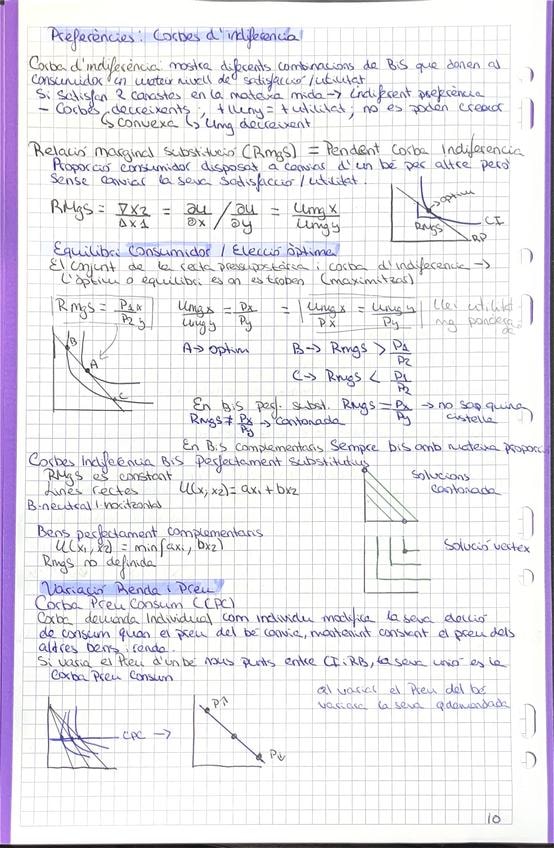 Preferències: Corbes d'indiferència
Corba d'indiferència: mostra diferents combinacions de BiS que donen al
consumidor un mateix nivell de satisfacció/utilitat
Si satisfan 2 canastes en la mateixa mida → indiferent preferència
- Corbes decreixents, +Umg = +utilitat, no es poden creuar
↳ convexa ↳ Umg decreixent
Relació marginal substitució (RMgS) = Pendent corba Indiferència
Proporció consumidor disposat a canviar d'un bé per altre però
sense canviar la seva satisfacció/utilitat.
RMgS = ∇x2/Δx1 = ∂u/∂x / ∂u/∂y = Umg x/Umg y
òptim
RMgS
CI
RP
Equilibri Consumidor / Elecció òptima
El conjunt de la recta pressupostària i corba d'indiferència →
l'òptim o equilibri és on es troben (maximitzar)
RmgS = P1x/P2y
Umgx/Umgy = Px/Py = | Umgx/Px = Umgy/Py | Llei utilitat
mg ponderada
B
A
C
A → òptim
B → RmgS > P1/P2
C → RmgS < P1/P2
En BiS perf. subst. RmgS = Px/Py → no sap quina
cistella
RmgS ≠ Px/Py → cantonada
En BiS complementaris sempre bis amb mateixa proporció
Corbes Indiferència BiS perfectament substitutius
RMgS és constant
Línies rectes U(x1,x2) = ax1 + bx2
B. neutral horitzontal
Solucions
cantonada
Bens perfectament complementaris
U(x1,x2) = min{ax1, bx2}
Rmgs no definida
Solució vèrtex
Variació Renda i Preu
Corba Preu Consum (CPC)
Corba demanda individual com individu modifica la seva elecció
de consum quan el preu del bé canvia, mantenint constant el preu dels
altres bens i renda.
Si varia el Preu d'un bé nous punts entre CI i RB, la seva unió és la
Corba Preu Consum
CPC →
P↑
P↓
al variar el Preu del bé
variarà la seva q demandada
10